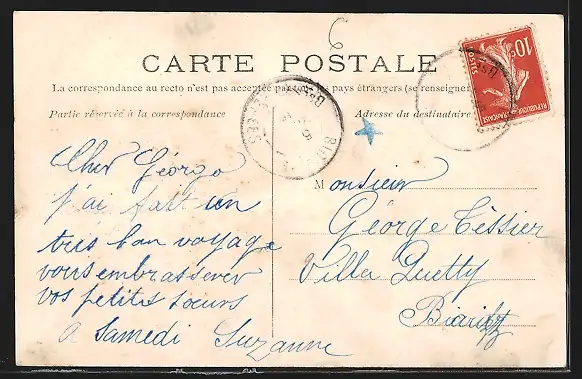 6
CARTE POSTALE
La correspondance au recto n'est pas acceptée par pays étrangers (se renseigner
Partie réservée à la correspondance
Adresse du destinataire
10c
POSTES
REPUBLIQUE FRANÇAISE
Cher Géorge
j'ai fait un
très bon voyage
vous embrasserer
vos petites sœurs
a Samedi Suzanne
Monsieur
Géorge Tessier
Villa Quetty
Biarritz